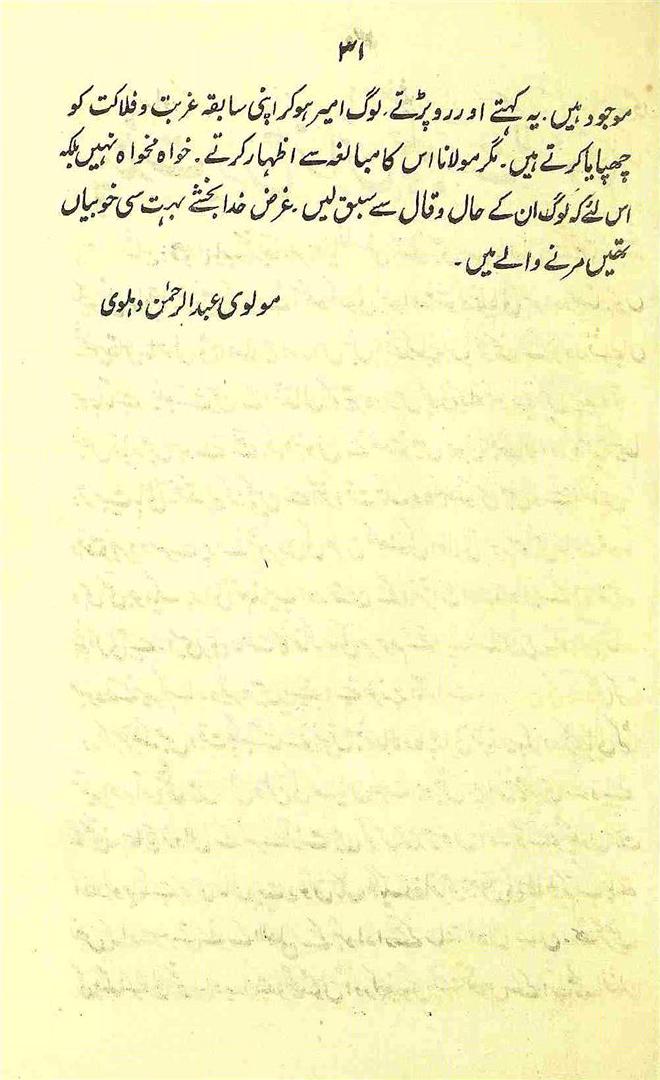 ۳۱
موجود ہیں۔ یہ کہتے اور رو پڑتے۔ لوگ امیر ہوکر اپنی سابقہ غربت و فلاکت کو
چھپایا کرتے ہیں۔ مگر مولانا اس کا مبالغہ سے اظہار کرتے۔ خواہ مخواہ نہیں بلکہ
اس لئے کہ لوگ ان کے حال و قال سے سبق لیں۔ غرض خدا بخشے بہت سی خوبیاں
تھیں مرنے والے میں۔
مولوی عبدالرحمٰن دہلوی